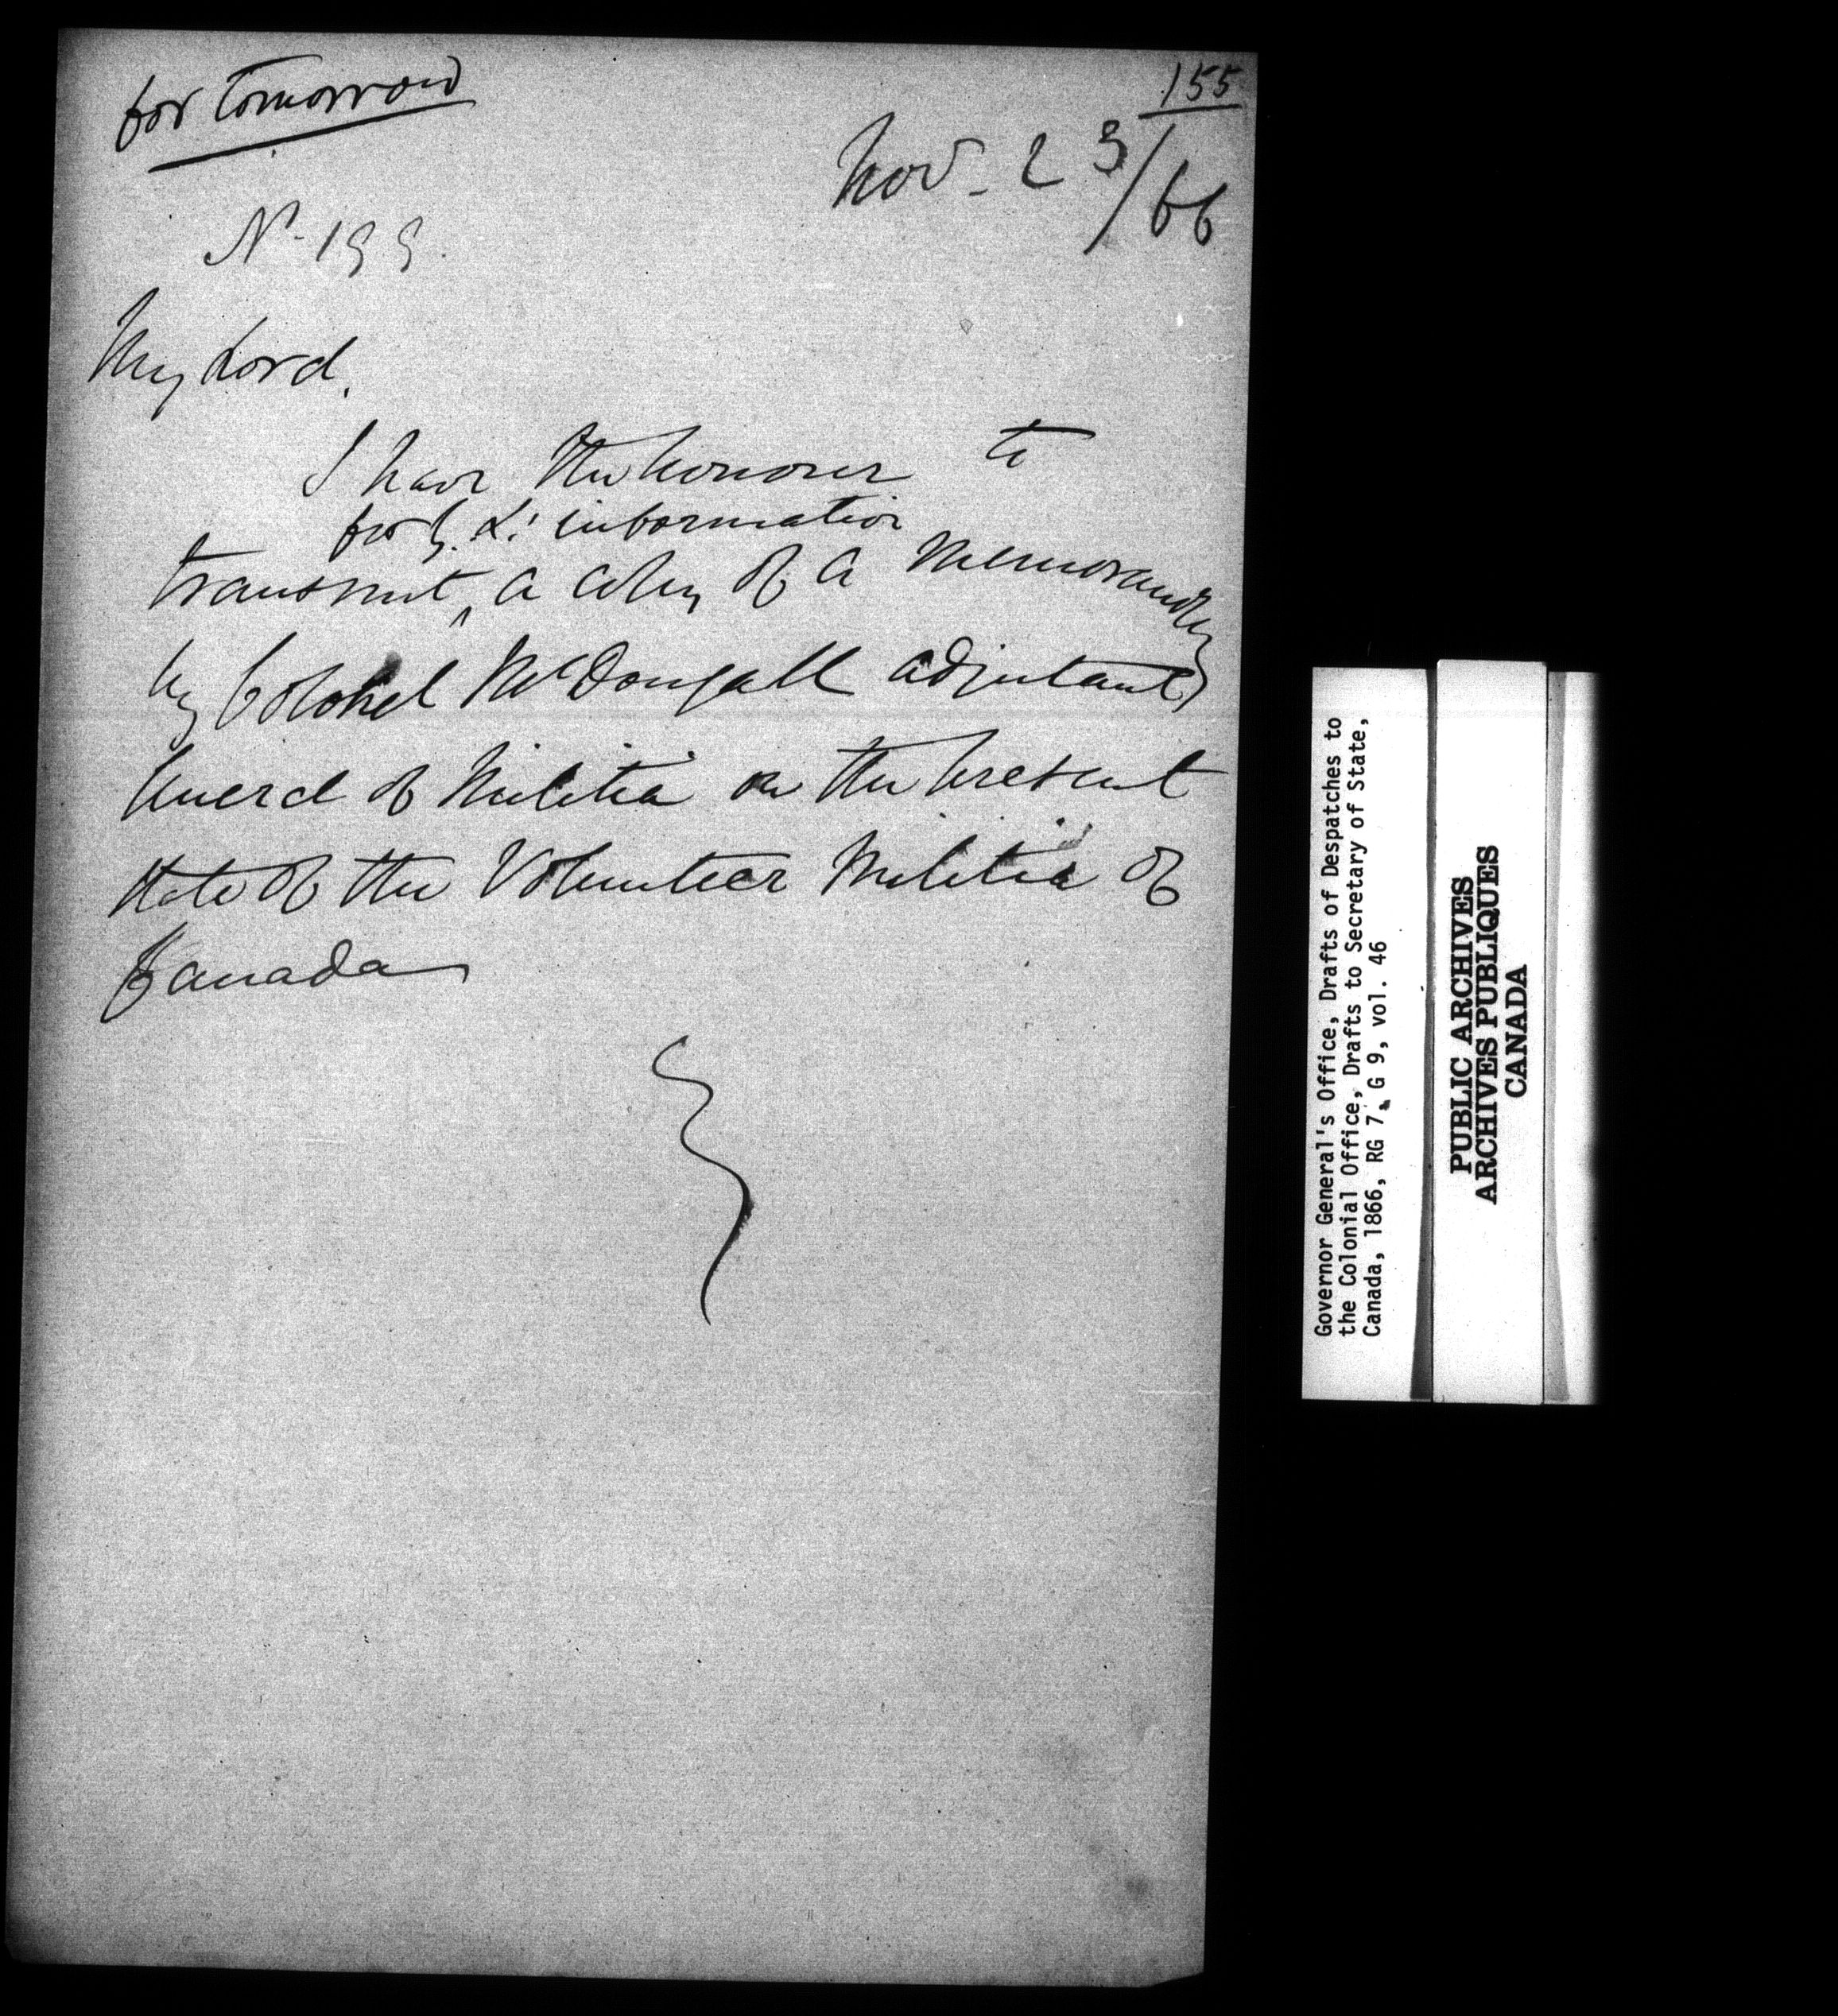 for tomorrow
155
Nov - 23/66
N- 199.
My Lord,
I have the honour to
for Y. L: information
transmit ^ a copy of a Memorandum
by Colonel McDougall adjutant
General of Militia on the present
state of the Volunteer Militia of
Canada
Governor General's Office, Drafts of Despatches to
the Colonial Office, Drafts to Secretary of State,
Canada, 1866, RG 7, G 9, vol. 46
PUBLIC ARCHIVES
ARCHIVES PUBLIQUES
CANADA